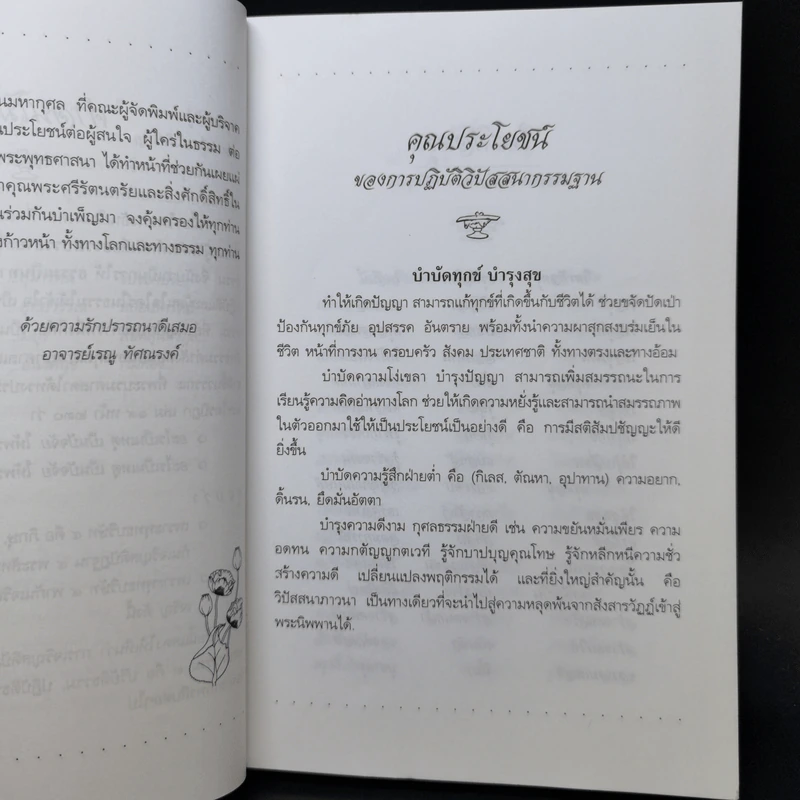 นมหากุศล ที่คณะผู้จัดพิมพ์และผู้บริจาค
นประโยชน์ต่อผู้สนใจ ผู้ใคร่ในธรรม ต่อ
พระพุทธศาสนา ได้ทำหน้าที่ช่วยกันเผยแผ่
าคุณพระศรีรัตนตรัยและสิ่งศักดิ์สิทธิ์ใน
นร่วมกันบำเพ็ญมา จงคุ้มครองให้ทุกท่าน
งก้าวหน้า ทั้งทางโลกและทางธรรม ทุกท่าน
ด้วยความรักปรารถนาดีเสมอ
อาจารย์เรณู ทัศณรงค์
คุณประโยชน์
ของการปฏิบัติวิปัสสนากรรมฐาน
บำบัดทุกข์ บำรุงสุข
ทำให้เกิดปัญญา สามารถแก้ทุกข์ที่เกิดขึ้นกับชีวิตได้ ช่วยขจัดปัดเป่า
ป้องกันทุกข์ภัย อุปสรรค อันตราย พร้อมทั้งนำความผาสุกสงบร่มเย็นใน
ชีวิต หน้าที่การงาน ครอบครัว สังคม ประเทศชาติ ทั้งทางตรงและทางอ้อม
บำบัดความโง่เขลา บำรุงปัญญา สามารถเพิ่มสมรรถนะในการ
เรียนรู้ความคิดอ่านทางโลก ช่วยให้เกิดความหยั่งรู้และสามารถนำสมรรถภาพ
ในตัวออกมาใช้ให้เป็นประโยชน์เป็นอย่างดี คือ การมีสติสัมปชัญญะให้ดี
ยิ่งขึ้น
บำบัดความรู้สึกฝ่ายต่ำ คือ (กิเลส, ตัณหา, อุปาทาน) ความอยาก,
ดิ้นรน, ยึดมั่นอัตตา
บำรุงความดีงาม กุศลธรรมฝ่ายดี เช่น ความขยันหมั่นเพียร ความ
อดทน ความกตัญญูกตเวที รู้จักบาปบุญคุณโทษ รู้จักหลีกหนีความชั่ว
สร้างความดี เปลี่ยนแปลงพฤติกรรมได้ และที่ยิ่งใหญ่สำคัญนั้น คือ
วิปัสสนาภาวนา เป็นทางเดียวที่จะนำไปสู่ความหลุดพ้นจากสังสารวัฏฏ์เข้าสู่
พระนิพพานได้.